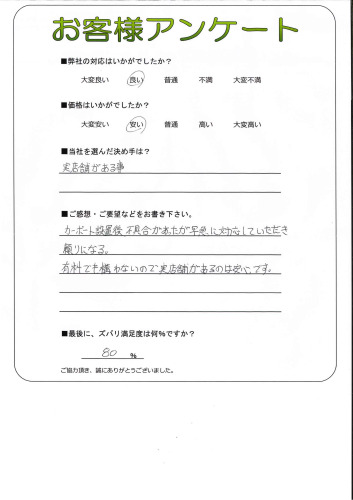 お客様アンケート
■弊社の対応はいかがでしたか？
大変良い 良い 普通 不満 大変不満
■価格はいかがでしたか？
大変安い 安い 普通 高い 大変高い
■当社を選んだ決め手は？
実店舗がある事
■ご感想・ご要望などをお書き下さい。
カーポート設置後 不具合があったが早急に対応していただき
頼りになる。
有料でも構わないので実店舗があるのは安心です。
■最後に、ズバリ満足度は何％ですか？
80 ％
ご協力頂き、誠にありがとうございました。